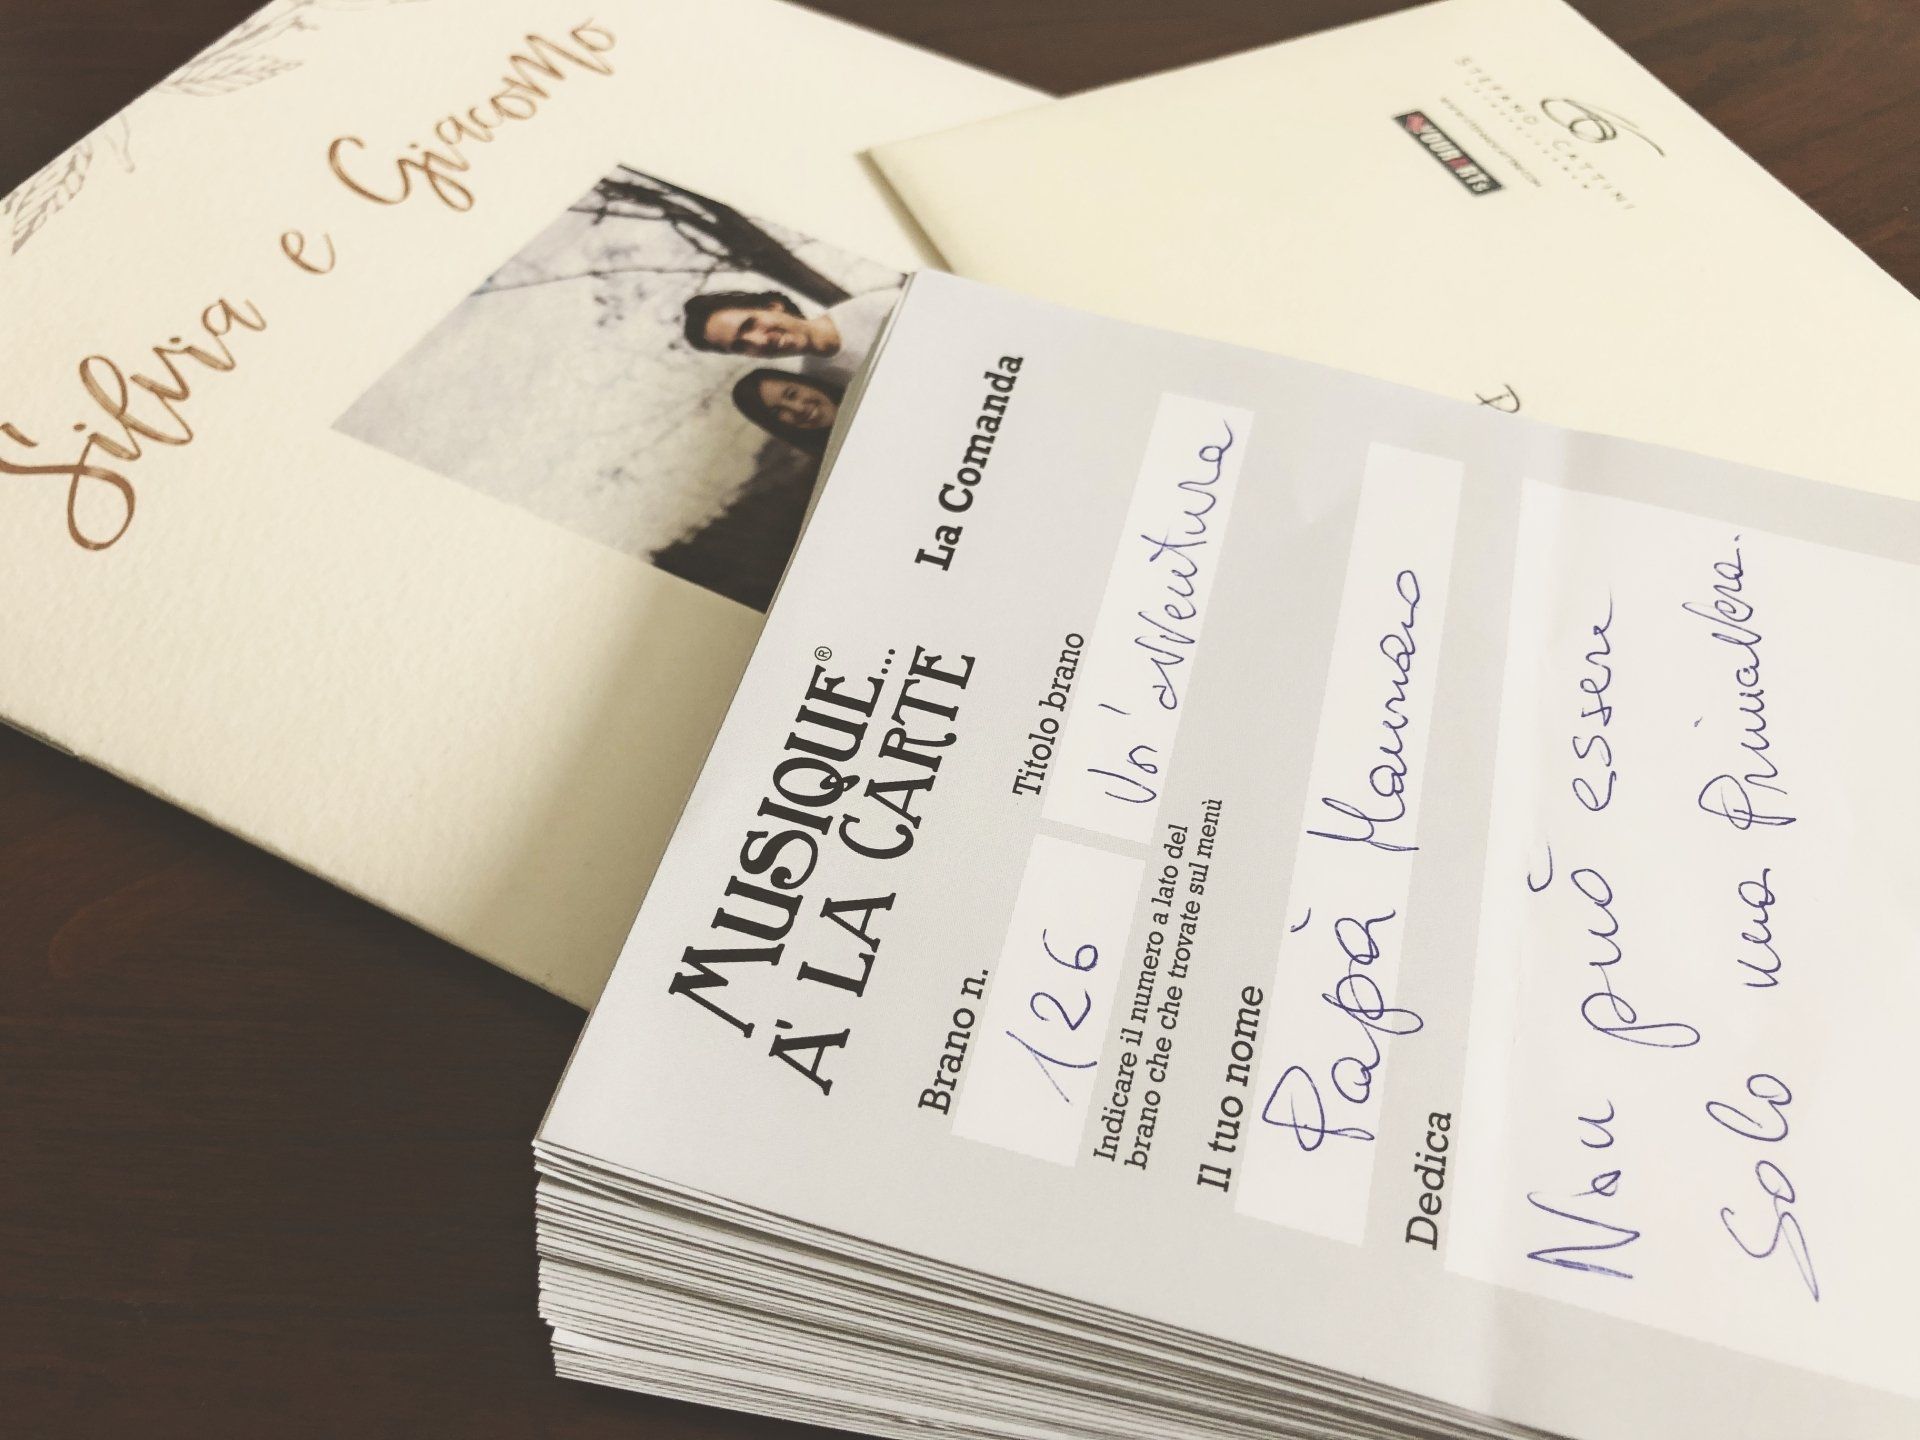 Silvia e Giacomo
STEFANO CATTINI
YOUR ARTS
MUSIQUE®...
A' LA CARTE
La Comanda
Brano n.
Titolo brano
126
Un' avventura
Indicare il numero a lato del
brano che che trovate sul menù
Il tuo nome
Papà Mariano
Dedica
Non può essere
Solo una Primavera.